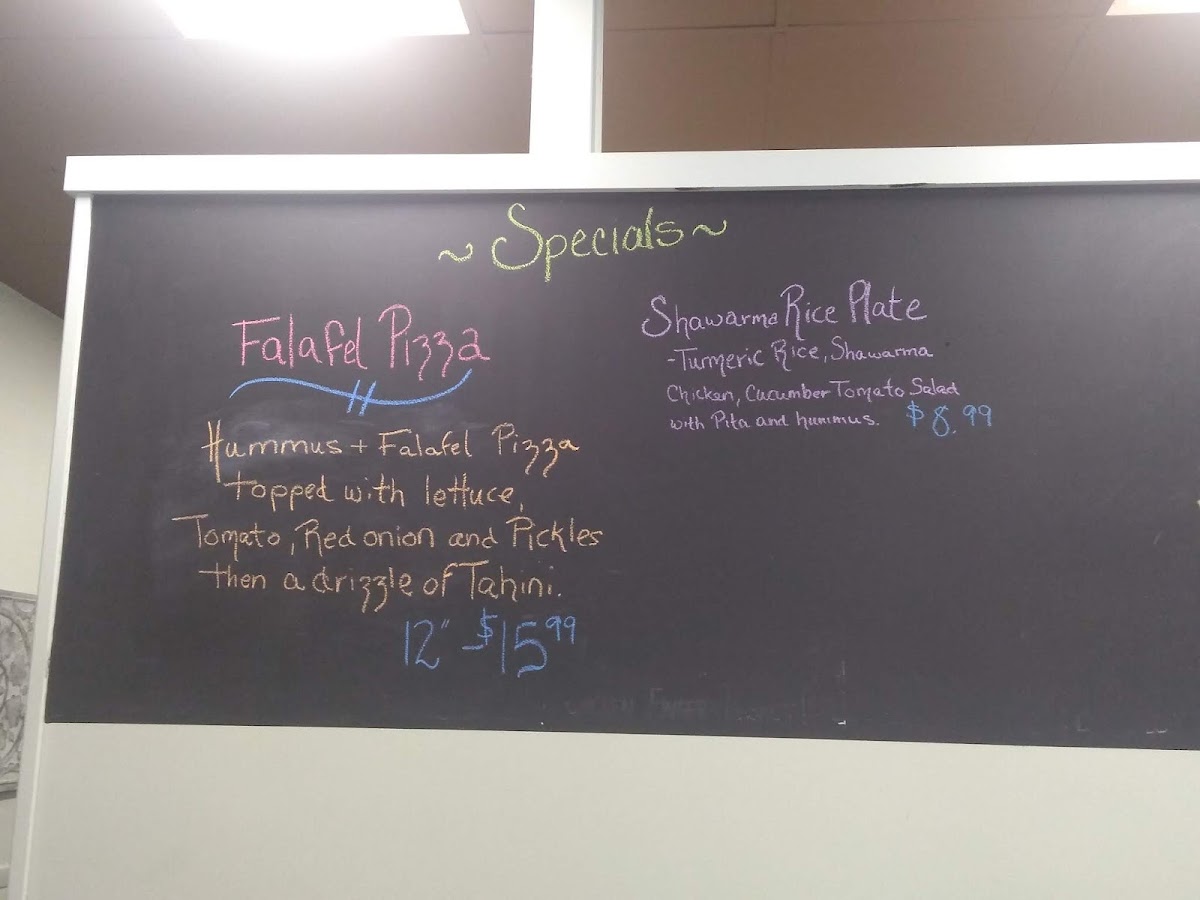 ~ Specials ~
Falafel Pizza
Hummus + Falafel Pizza
topped with lettuce,
Tomato, Red onion and Pickles
then a drizzle of Tahini.
12" - $15.99
Shawarma Rice Plate
- Turmeric Rice, Shawarma
Chicken, Cucumber Tomato Salad
with Pita and hummus. $8.99